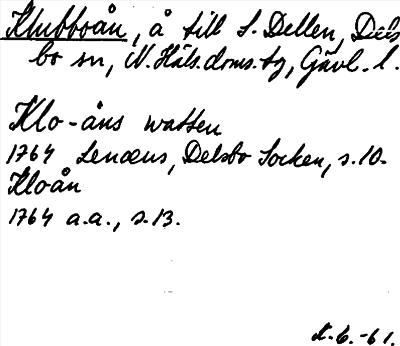 Klubboån, å till S. Dellen, Dels
bo sn, N. Häls. doms. tg, Gävl. l.
Klo-åns watten
1764 Lenæus, Delsbo Socken, s. 10.
Kloån
1764 a.a., s. 13.
-61.